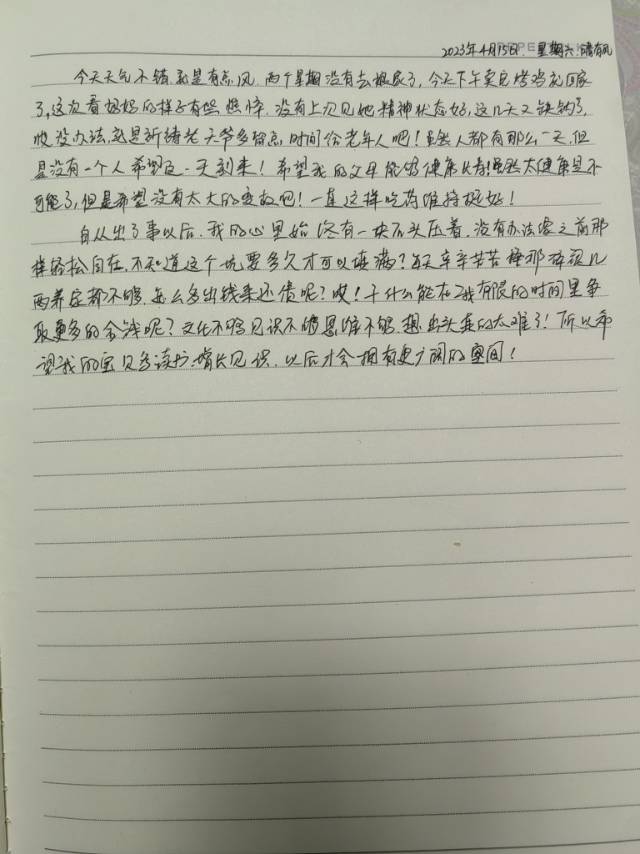 2023年4月15日. 星期六 晴有风
今天天气不错,就是有点风.两个星期没有去娘家了,今天下午卖完 就回家
了,这次看妈妈的样子有些憔悴.没有上次见她精神状态好,这几天又 了,
没办法,就是祈祷老天爷多留点时间给老年人吧!虽然人都有那么一天,但
是没有一个人希望这一天到来!希望我的父母能够健康长寿!虽然太健康是不
可能了,但是希望没有太大的变故吧!一直这样吃药维持挺好!
自从出了事以后.我的心里始终有一块石头压着.没有办法像之前那
样轻松自在,不知道这个坑要多久才可以填满?每天辛辛苦苦挣那碎银几
两养家都不够.怎么多出钱来还债呢?哎!干什么能在我有限的时间里争
取更多的金钱呢?文化不够见识不够思维不够想出头真的太难了!所以希
望我的宝贝多读书.增长见识.以后才会拥有更广阔的空间!